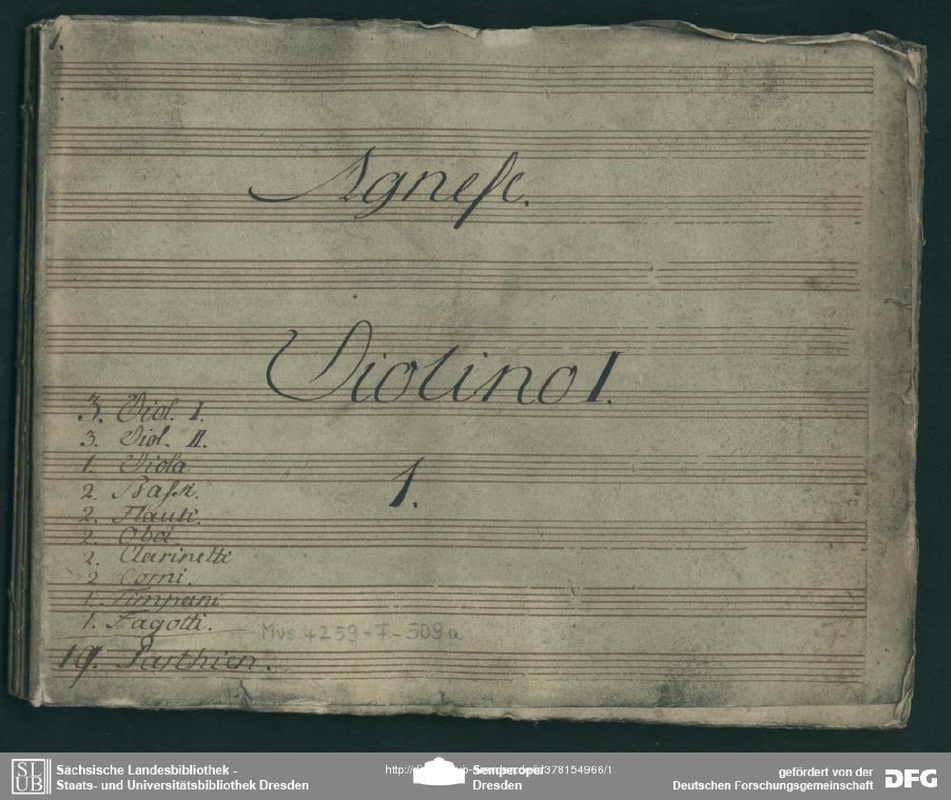 1.
Agnese.
Violino I.
1.
3. Viol. I.
3. Viol. II.
1. Viola
2. Bassi.
2. Flauti.
2. Oboi
2. Clarinetti
2 Corni.
1. Timpani
1. Fagotti.
Mus. 4259-F-509a
19. Parthien.
SLUB
Sächsische Landesbibliothek -
Staats- und Universitätsbibliothek Dresden
Semperoper
Dresden
gefördert von der
Deutschen Forschungsgemeinschaft
DFG